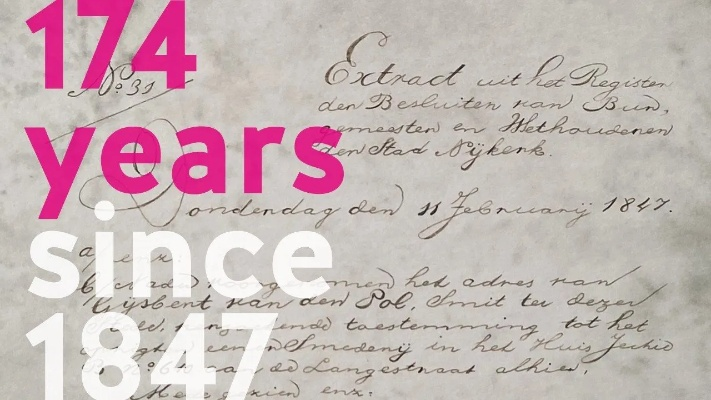 174
years
since
1847
No. 31
Extract uit het Register
den Besluiten van Bur,
gemeesten en Wethouderen
den Stad Nijkerk.
Donderdag den 11 Februarij 1847.
het adres van
Gijsbert van den Pol, Smit te dezer
toestemming tot het
Smederij in het Huis
aan de Langestraat alhier,
enz.